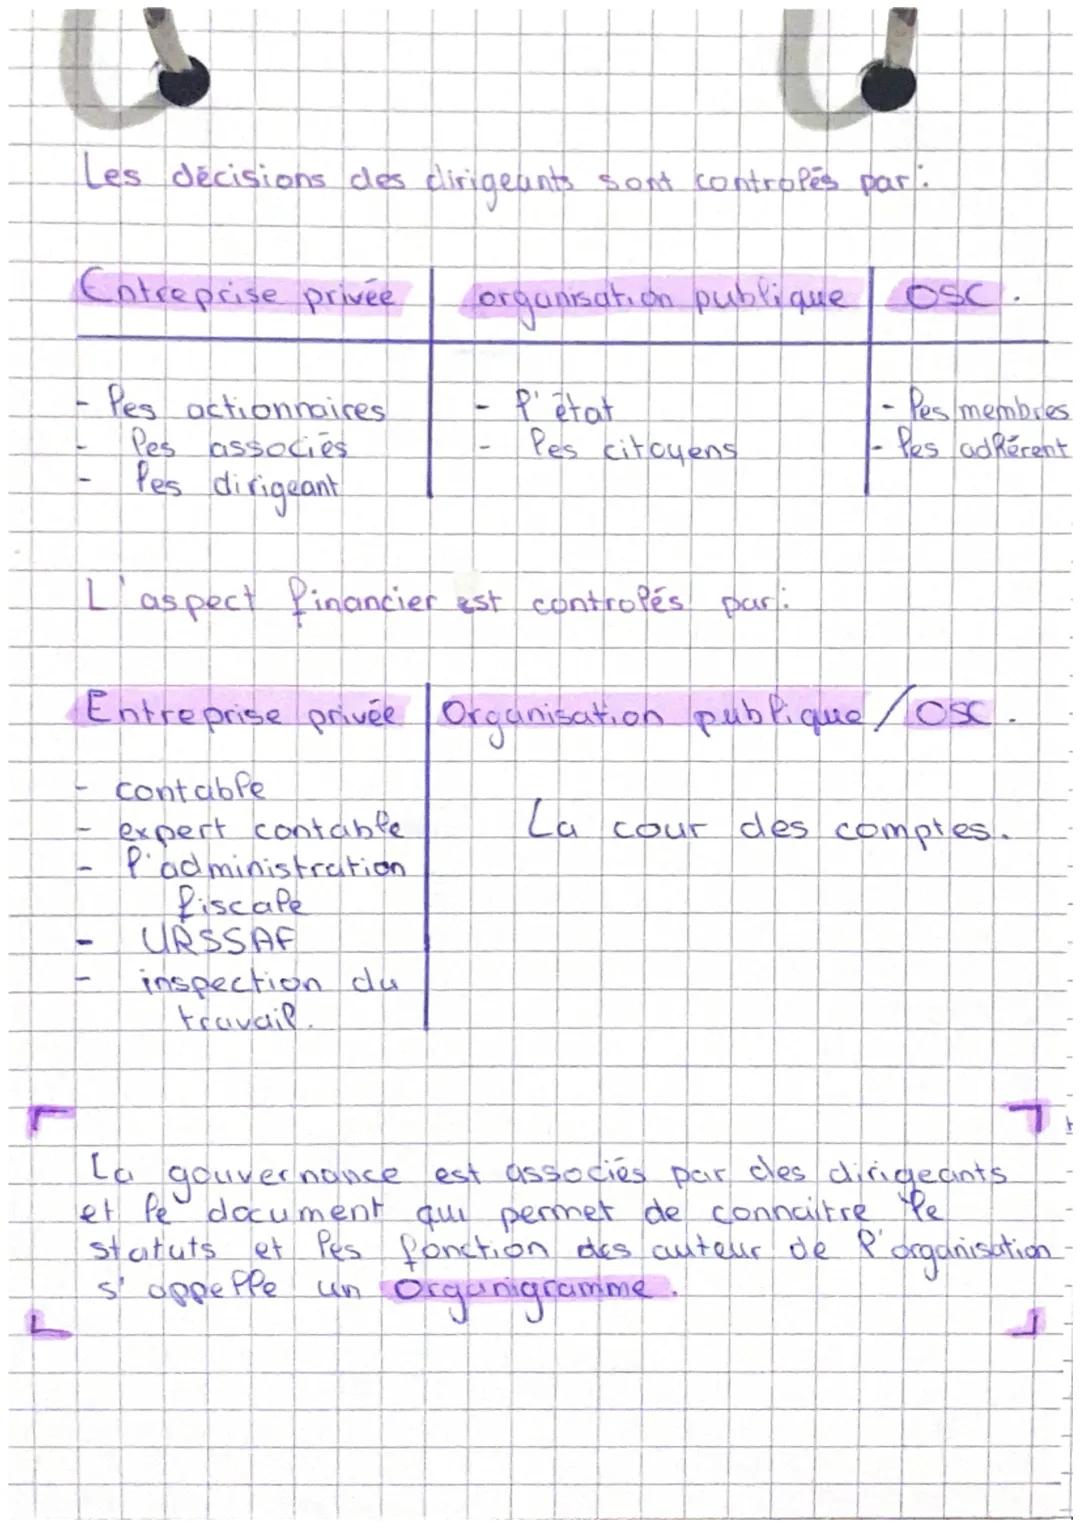 Les décisions des dirigeants sont controlés par :
Entreprise privée organisation publique OSC.
- les actionnaires - l'état - les membres
- les associés - les citoyens - les adhérent
- les dirigeant
L'aspect financier est controlés par :
Entreprise privée Organisation publique / OSC.
- contable
- expert contable La cour des comptes.
- l'administration
fiscale
- URSSAF
- inspection du
travail.
La gouvernance est associés par des dirigeants
et le document qui permet de connaitre le
statuts et les fonction des auteur de l'organisation
s'appelle un Organigramme.